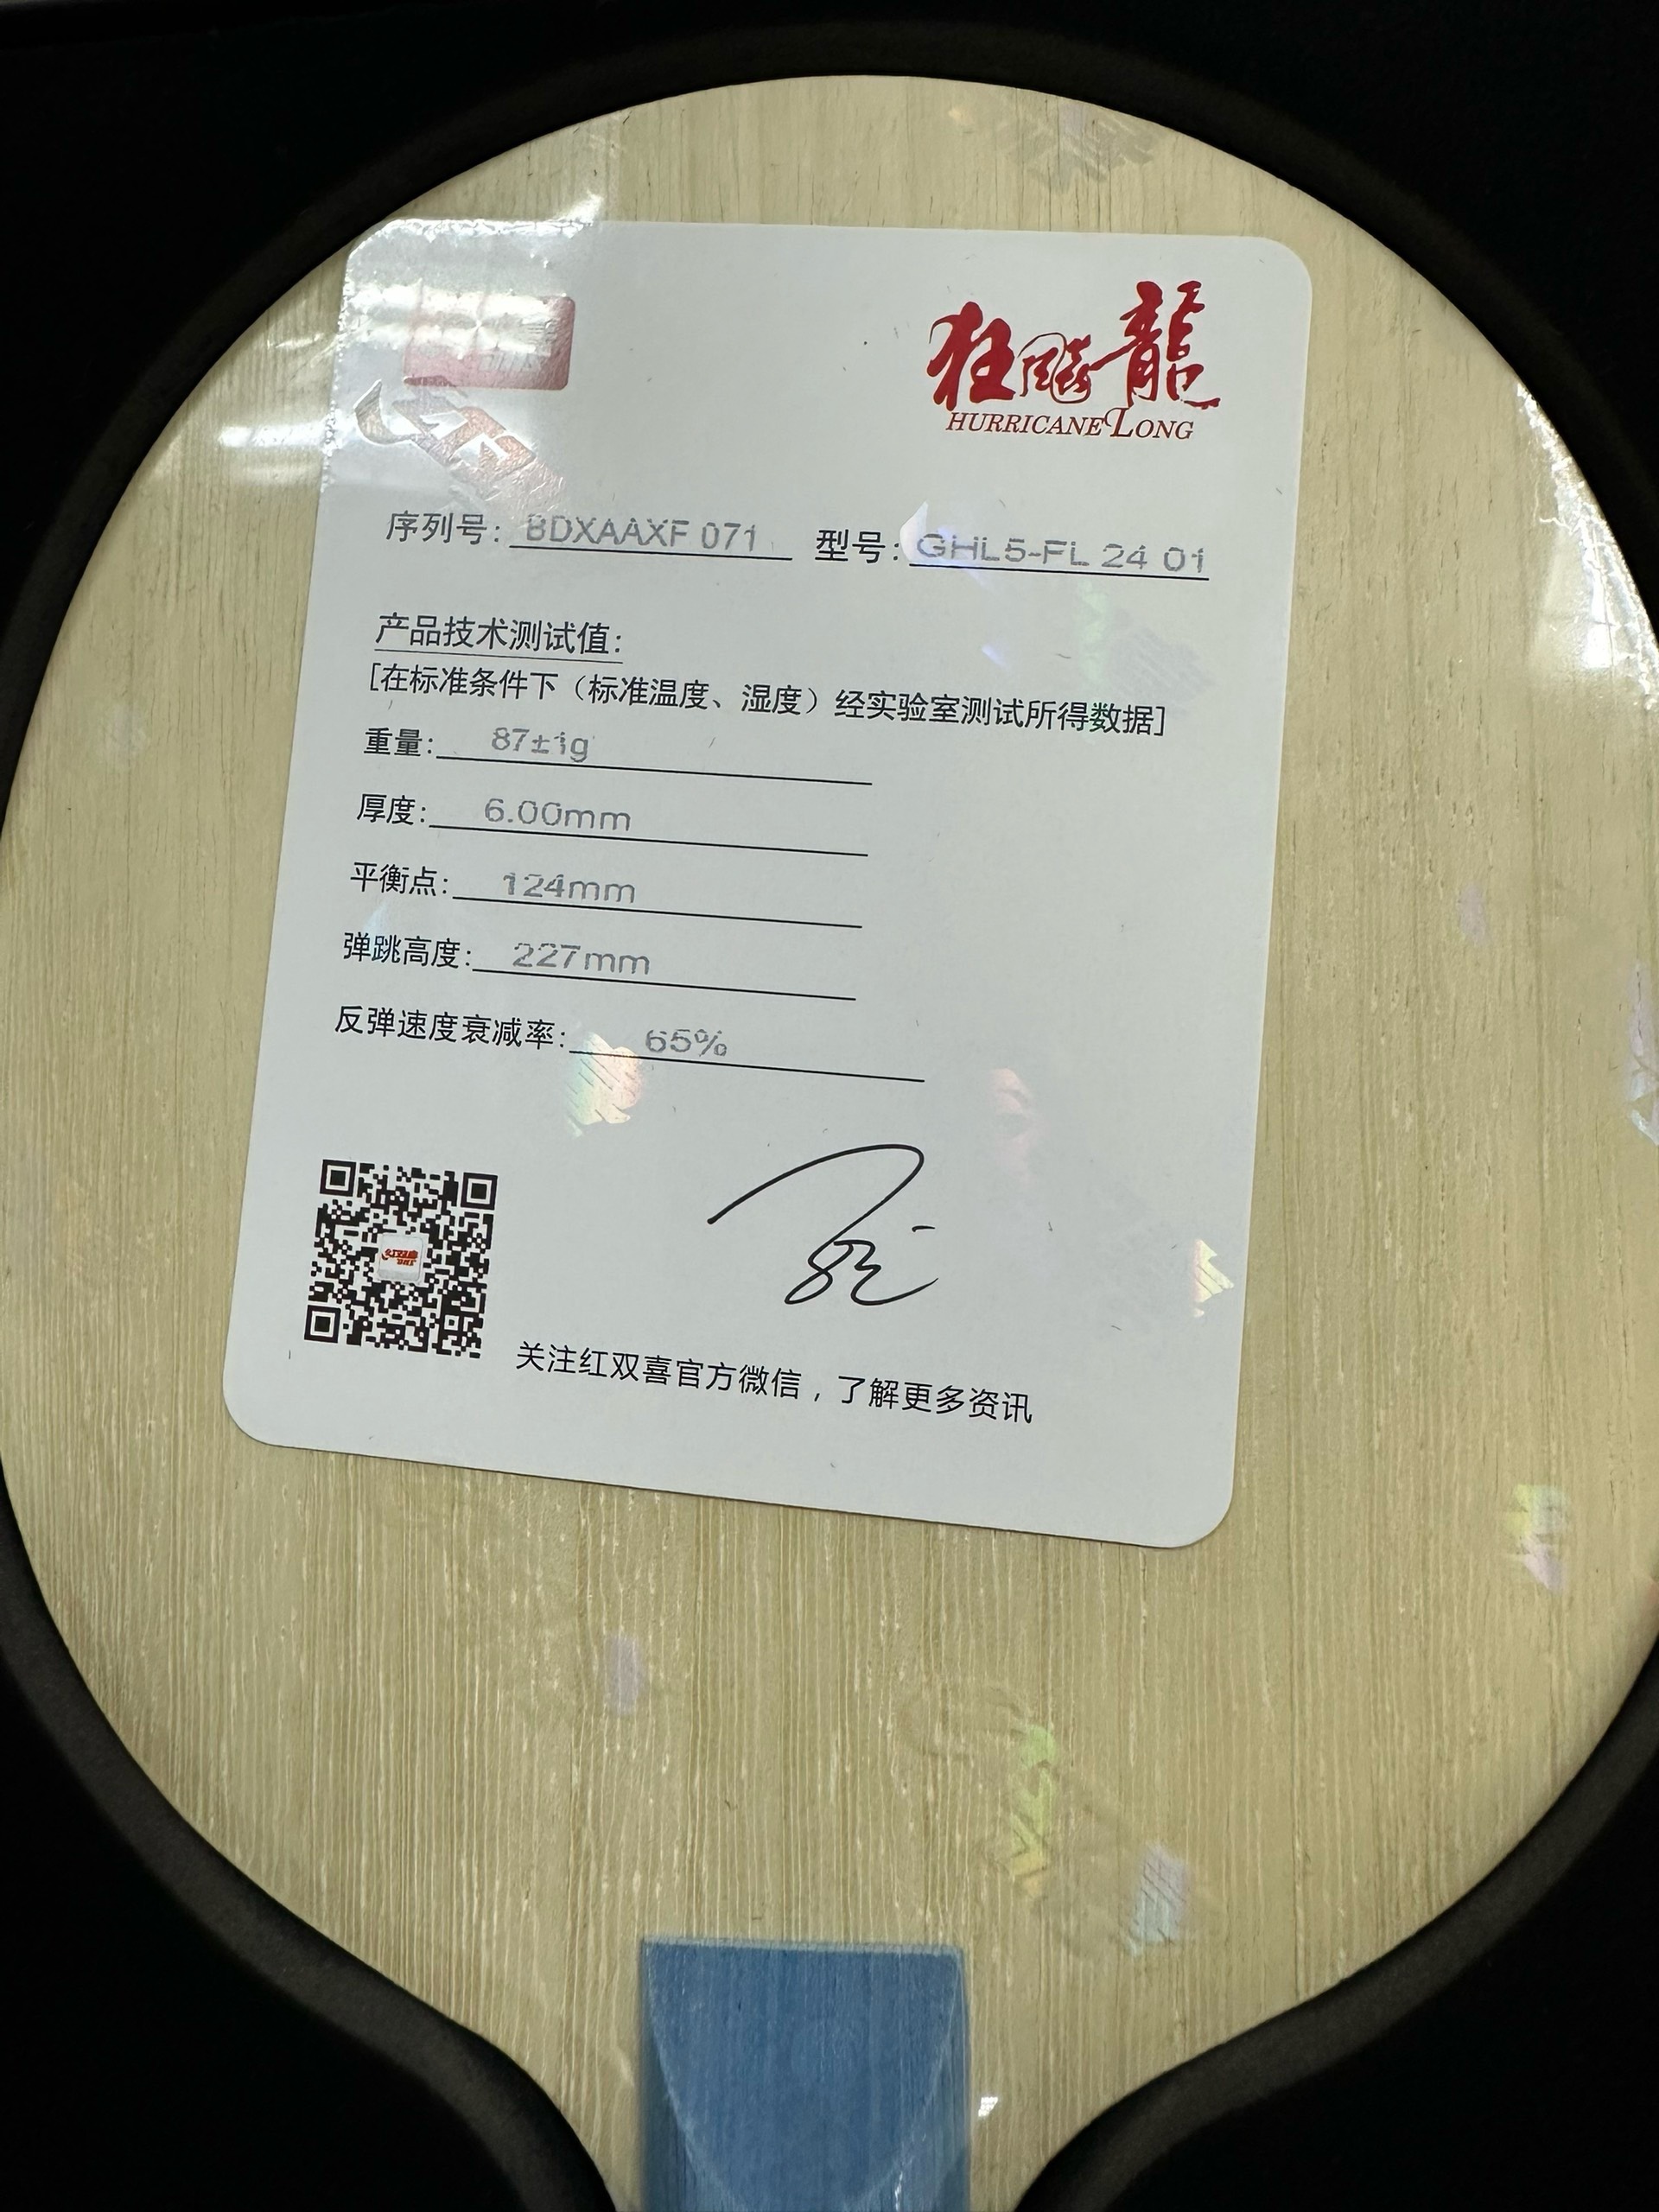 狂飚龍
HURRICANE LONG
序列号: BDXAAXF 071 型号: GHL5-FL 24 01
产品技术测试值:
[在标准条件下（标准温度、湿度）经实验室测试所得数据]
重量: 87±1g
厚度: 6.00mm
平衡点: 124mm
弹跳高度: 227mm
反弹速度衰减率: 65%
红双喜
DHS
关注红双喜官方微信，了解更多资讯